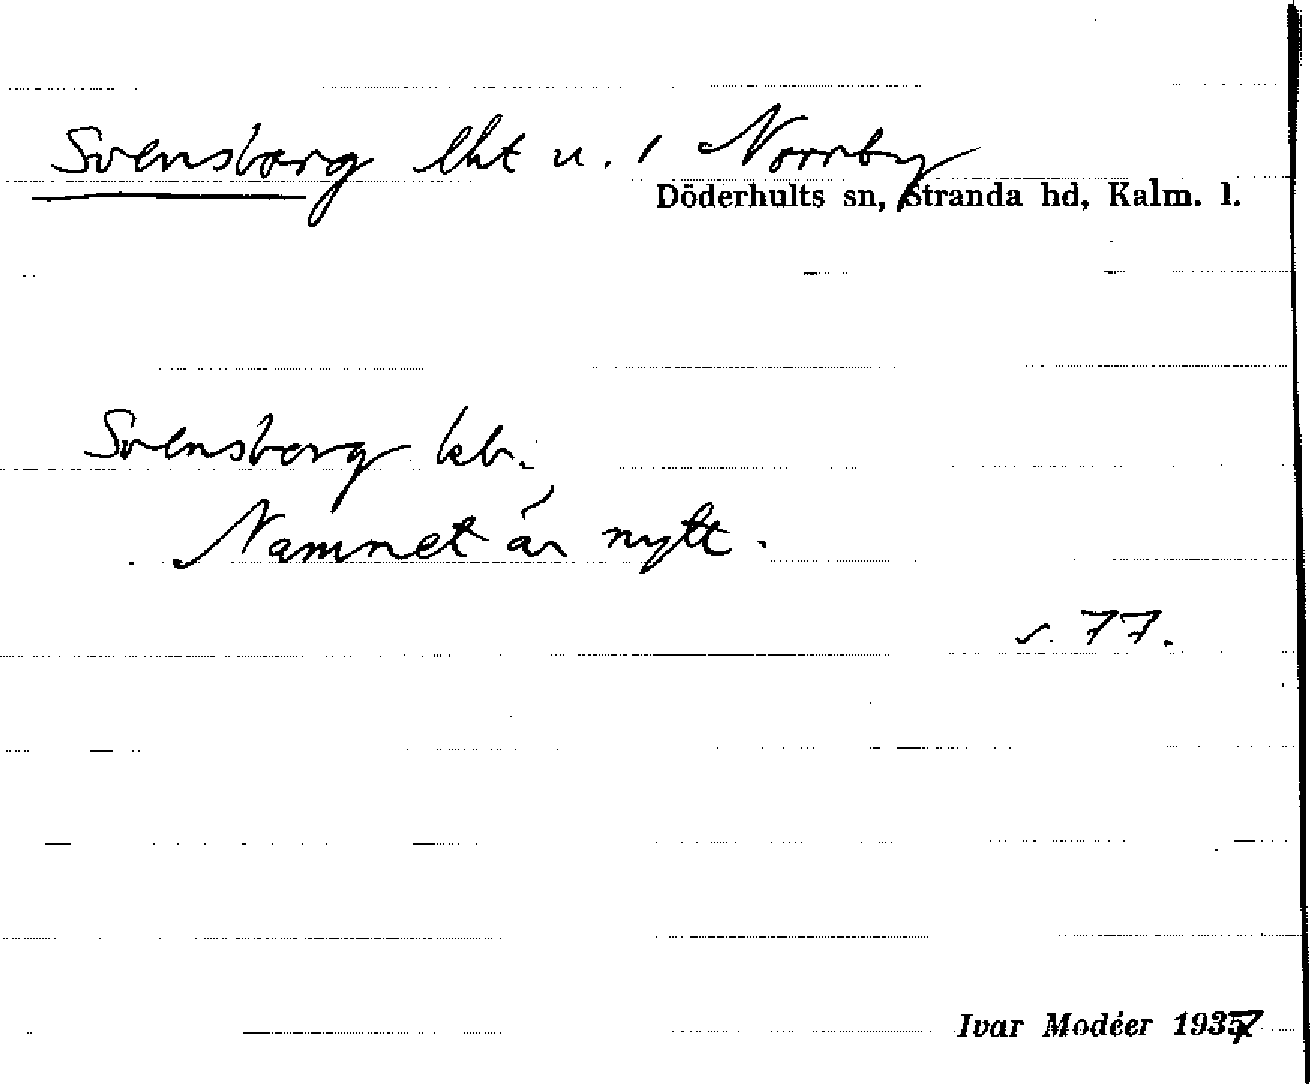 Svensborg lht u. 1 Norrby
Döderhults sn, Stranda hd, Kalm. l.
Svensborg kb.
Namnet är nytt.
s. 77.
Ivar Modéer 1937